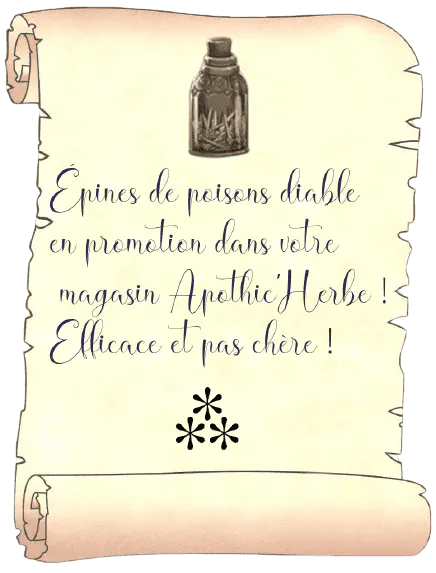 Épines de poisons diable
en promotion dans votre
magasin Apothic'Herbe !
Efficace et pas chère !